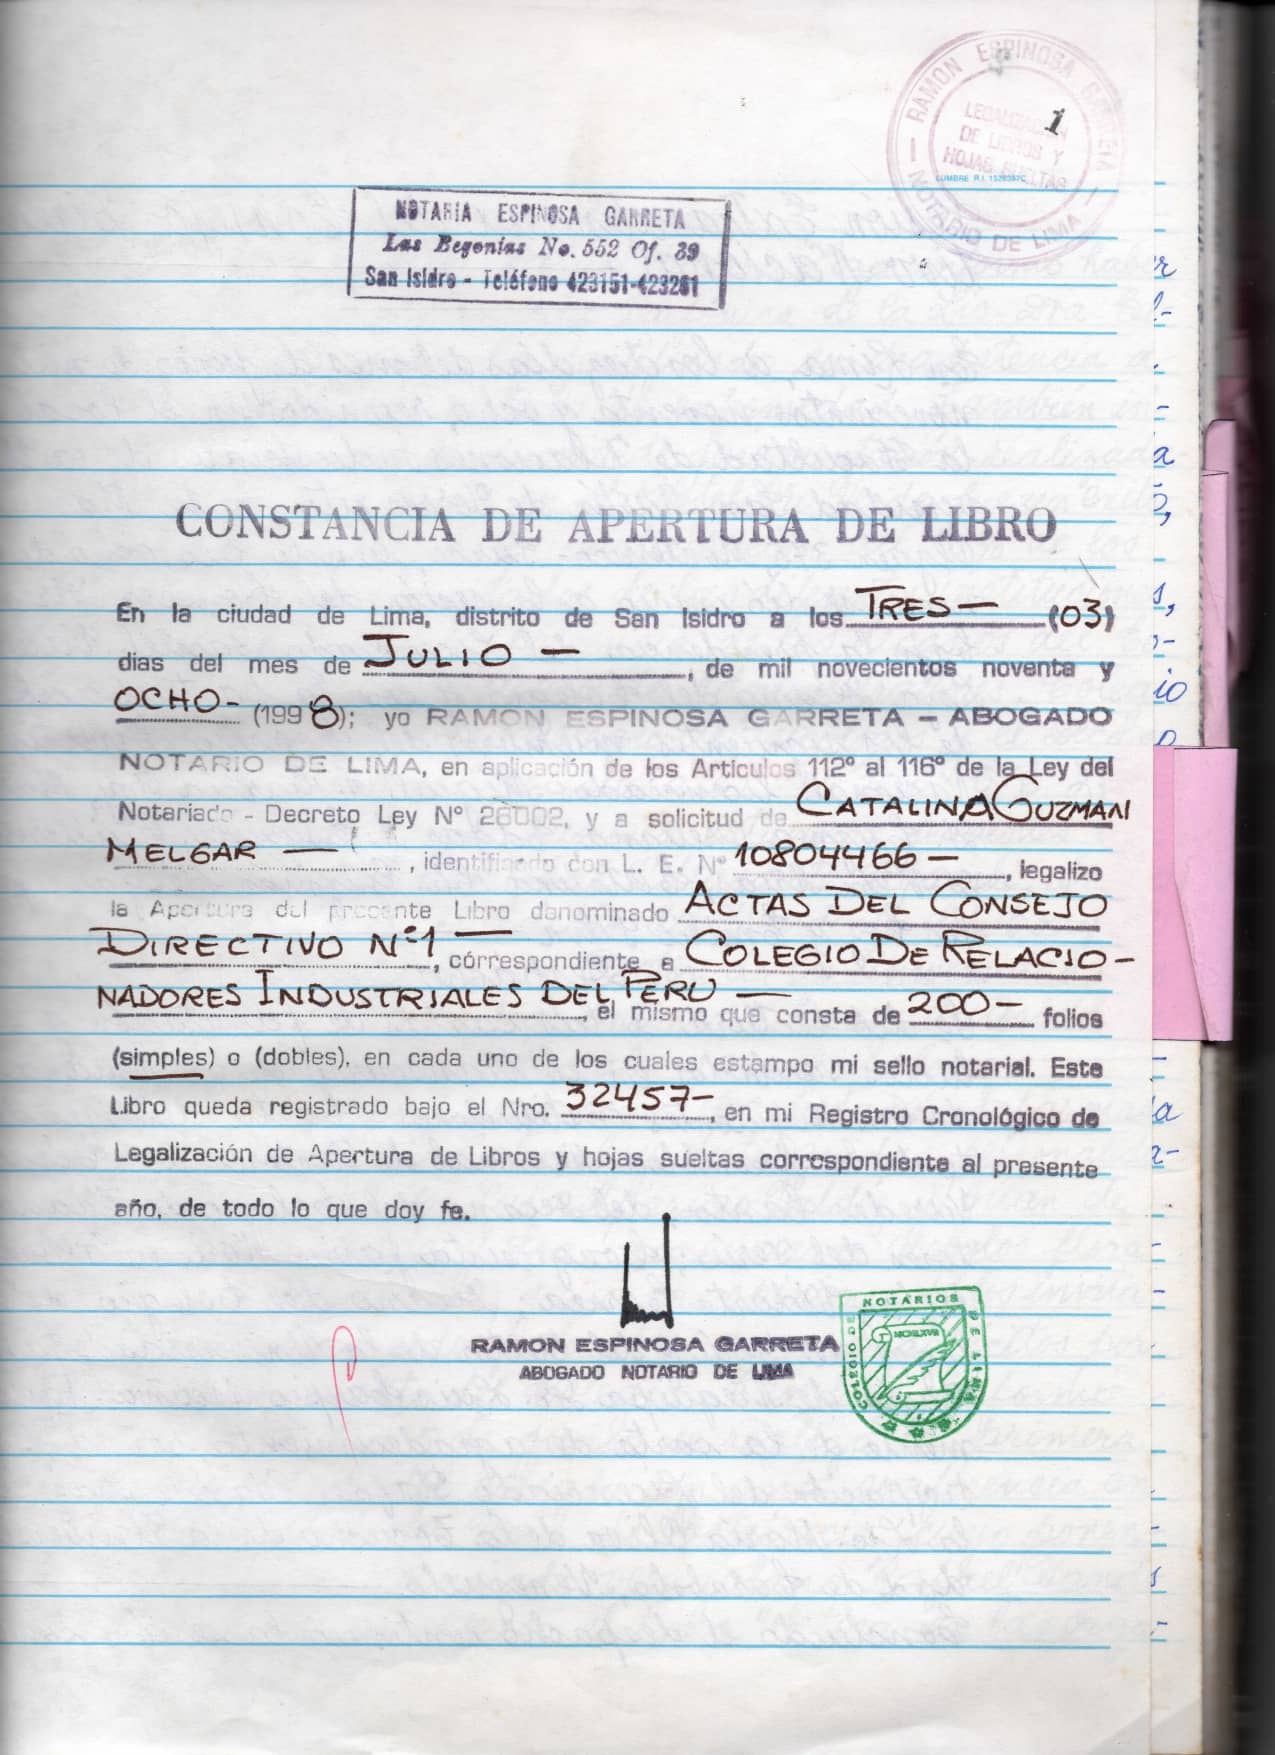 RAMON ESPINOSA GARRETA
NOTARIO DE LIMA
LEGALIZACION
DE LIBROS Y
HOJAS SUELTAS
1
NOTARIA ESPINOSA GARRETA
Las Begonias No. 552 Of. 39
San Isidro - Teléfono 423151-423261
CONSTANCIA DE APERTURA DE LIBRO
En la ciudad de Lima, distrito de San Isidro a los TRES — (03)
dias del mes de JULIO —, de mil novecientos noventa y
OCHO- (1998); yo RAMON ESPINOSA GARRETA - ABOGADO
NOTARIO DE LIMA, en aplicación de los Articulos 112º al 116º de la Ley del
Notariado - Decreto Ley Nº 26002, y a solicitud de CATALINA GUZMAN
MELGAR —, identificado con L. E. Nº 10804466 —, legalizo
la Apertura del presente Libro denominado ACTAS DEL CONSEJO
DIRECTIVO Nº1 —, córrespondiente a COLEGIO DE RELACIO-
NADORES INDUSTRIALES DEL PERU —, el mismo que consta de 200- folios
(simples) o (dobles), en cada uno de los cuales estampo mi sello notarial. Este
Libro queda registrado bajo el Nro. 32457-, en mi Registro Cronológico de
Legalización de Apertura de Libros y hojas sueltas correspondiente al presente
año, de todo lo que doy fe.
RAMON ESPINOSA GARRETA
ABOGADO NOTARIO DE LIMA
COLEGIO DE NOTARIOS DE LIMA